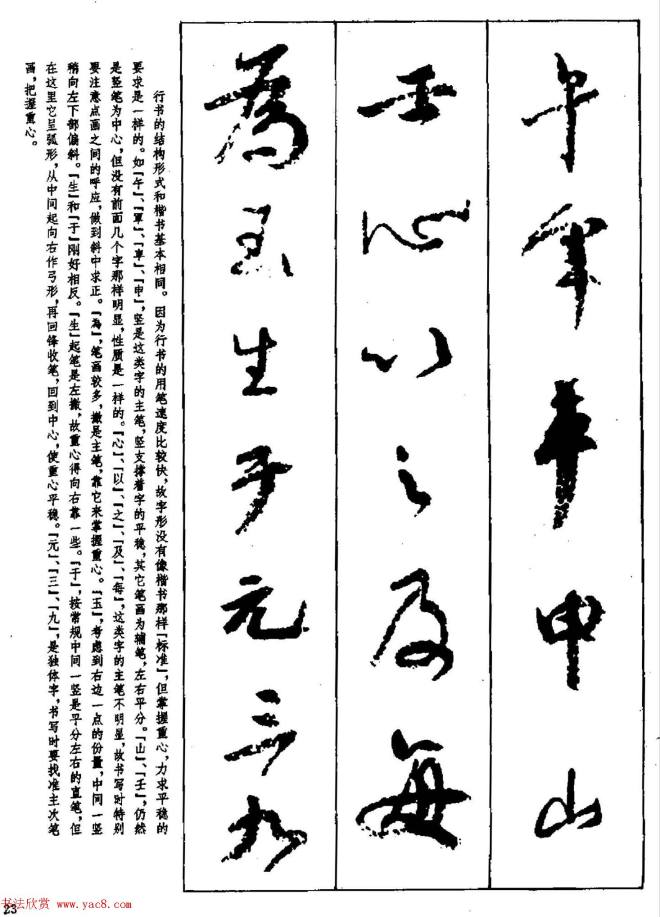 午申山
壬心以之及每
為玉生于元三九
行书的结构形式和楷书基本相同。因为行书的用笔速度比较快,故字形没有像楷书那样「标准」,但掌握重心,力求平稳的
要求是一样的。如「午」、「申」,竖是这类字的主笔,竖支撑着字的平稳,其它笔画为辅笔,左右平分。「山」、「壬」,仍然
是竖笔为中心,但没有前面几个字那样明显,性质是一样的。「心」、「以」、「之」、「及」、「每」,这类字的主笔不明显,故书写时特别
要注意点画之间的呼应,做到斜中求正。「為」,笔画较多,撇是主笔,靠它来掌握重心。「玉」,考虑到右边一点的份量,中间一竖
稍向左下部偏斜。「生」和「于」刚好相反。「生」起笔是左撇,故重心得向右靠一些。「于」,按常规中间一竖是平分左右的直笔,但
在这里它呈弧形,从中间起向右作弓形,再回锋收笔,回到中心,使重心平稳。「元」、「三」、「九」,是独体字,书写时要找准主次笔
画,把握重心。
书法欣赏 www.yac8.com
23